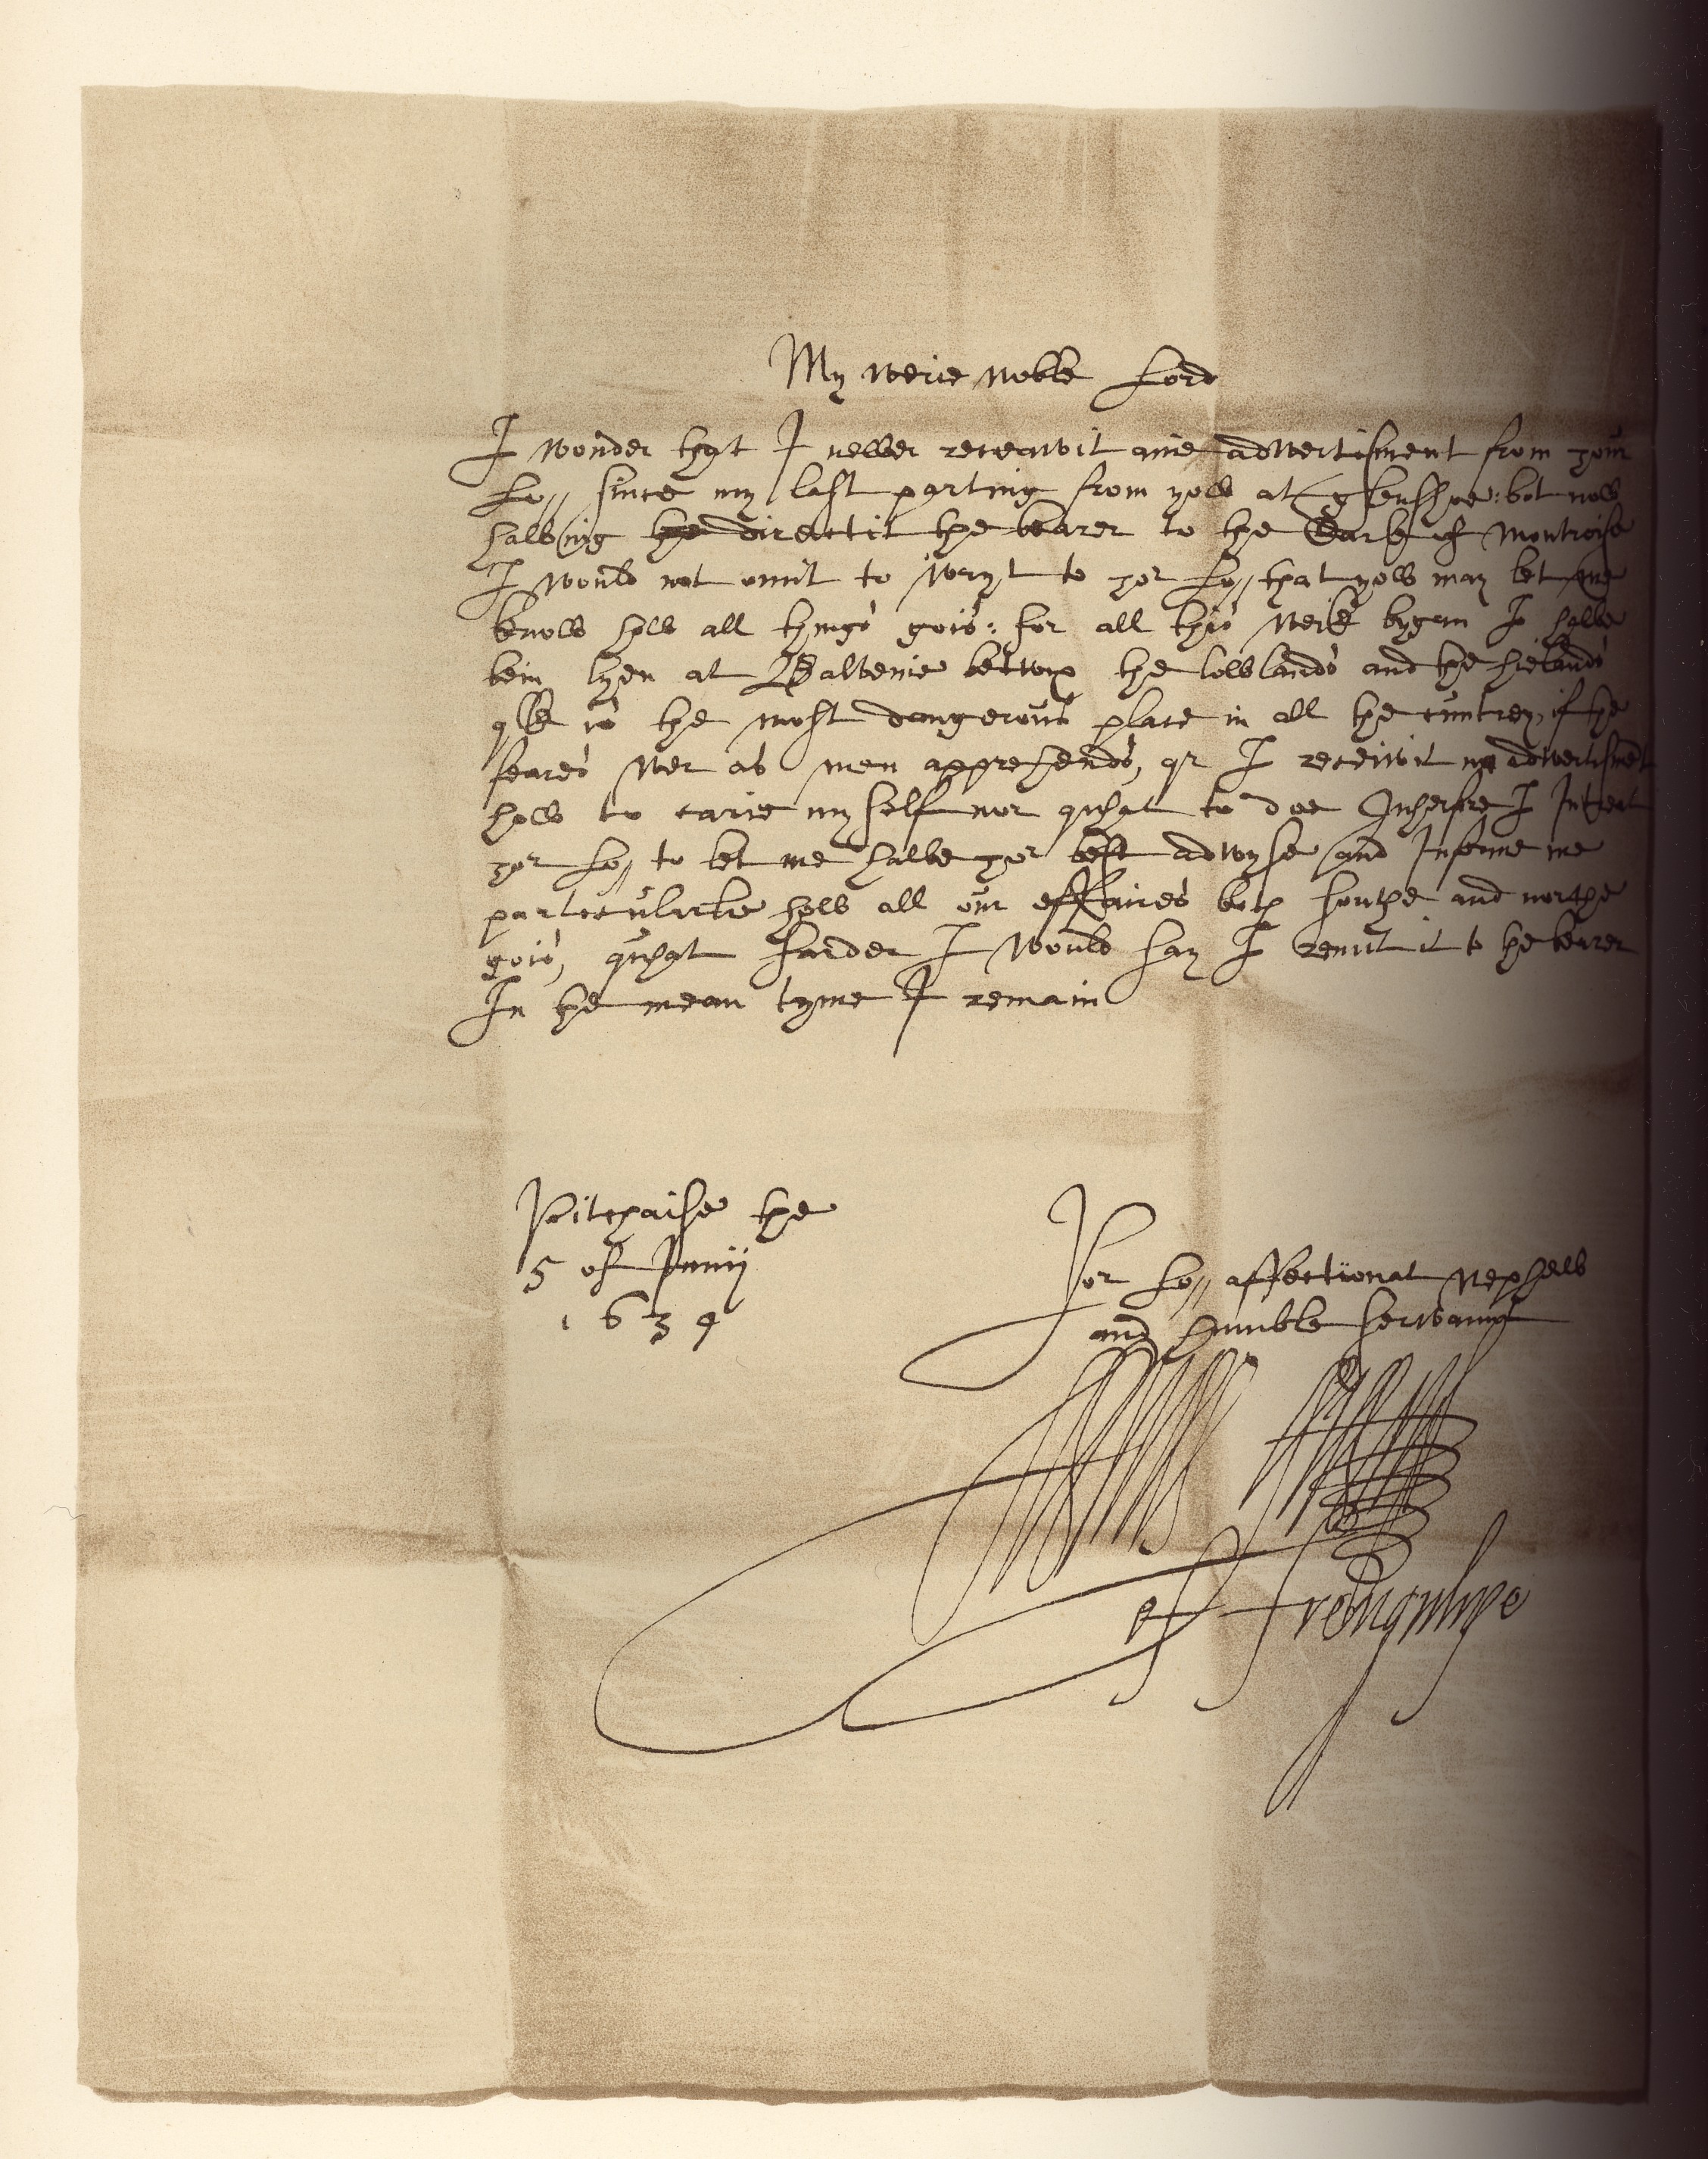 My verie noble Lord
I wonder that I never receavit anie advertisment from your
Lo// since my last parting from yow at glenshye: bot now
having the directit the bearer to the Earle of Montroise
I would not omit to wryt to yor Lo// that yow may let me
know how all things gois: for all this weik bygon I have
bein lyen at Balvenie betwix the lowlands and the hielands
qlk is the most dangerous place in all the cuntrey, if the
feares wer as men apprehends, qr I receivit no advertisment
how to carie my self nor quhat to doe Quherfore I Intreat
yor Lo// to let me have yor best advyse and Informe me
particularlie how all our effaires both southe and northe
gois, quhat farder I would say I remit it to the bearer
In the mean tyme I remain
Pitchaise the
5 of Junij
1639
Yor Lo// affectionat nephew
and humble servant
of